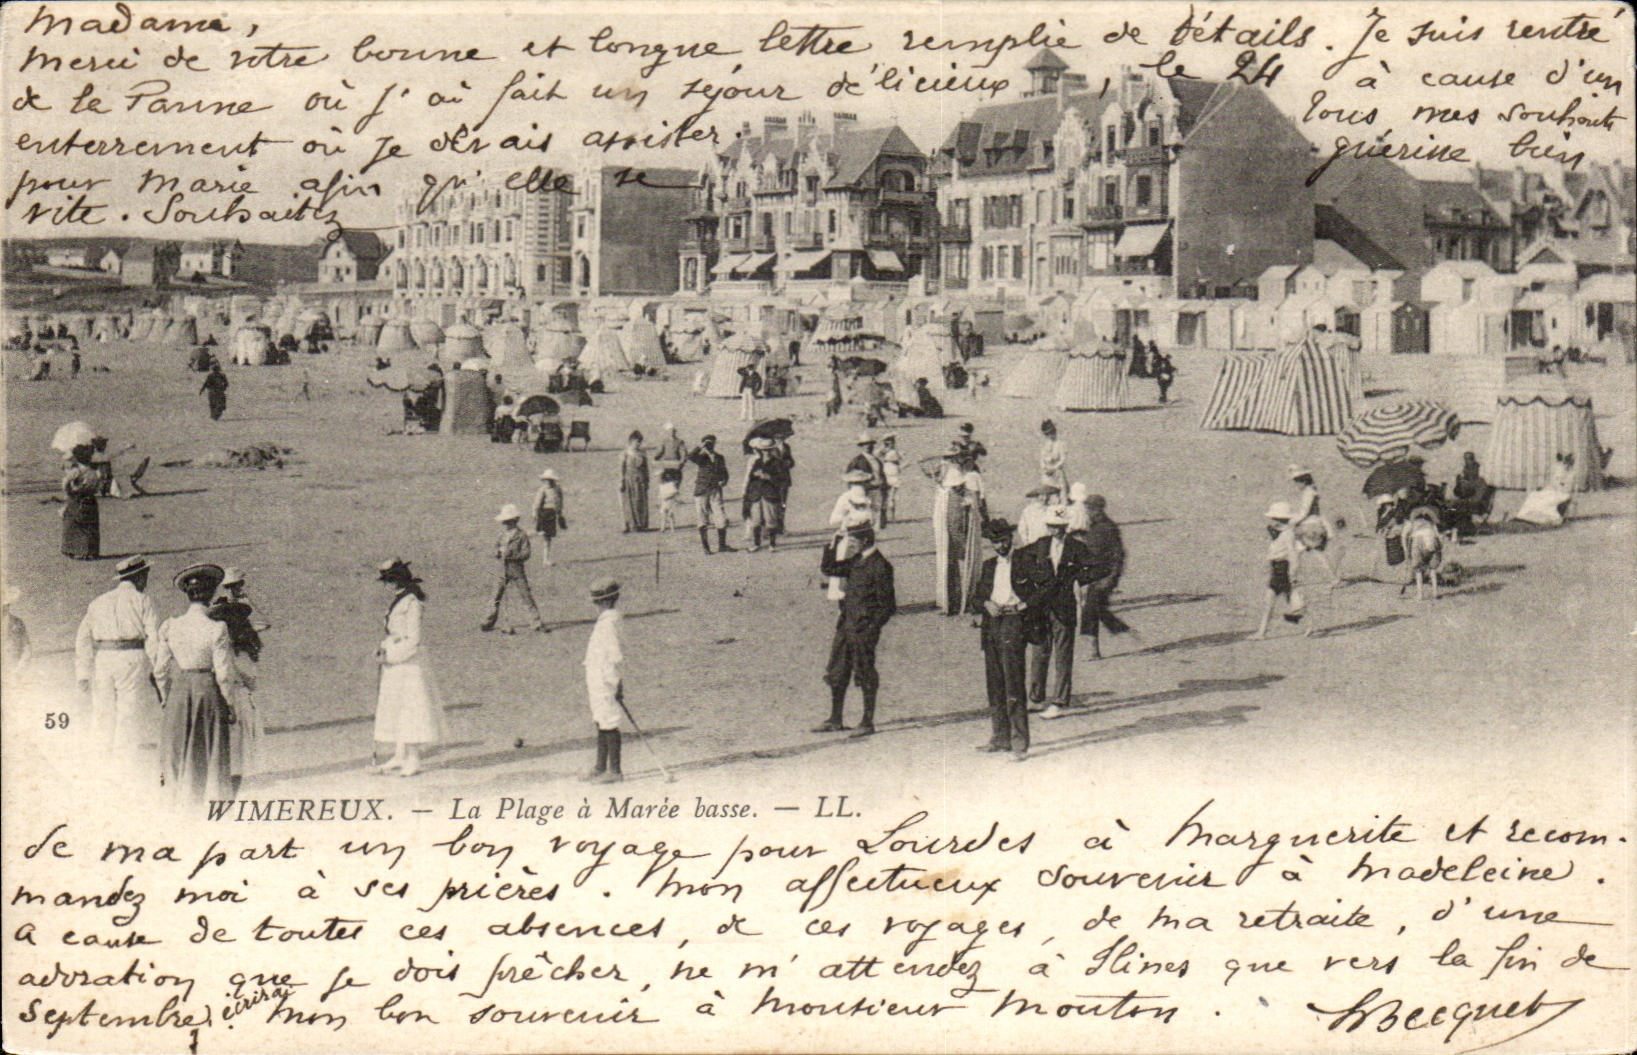 Madame,
Merci de votre bonne et longue lettre remplie de détails. Je suis rentré
de la Panne où j'ai fait un séjour délicieux, le 24 à cause d'un
enterrement où je devais assister. Tous mes souhaits
pour Marie afin qu'elle se guérisse bien
vite. Souhaitez
59
WIMEREUX. — La Plage à Marée basse. — LL.
de ma part un bon voyage pour Lourdes à Marguerite et recom-
mandez moi à ses prières. Mon affectueux souvenir à Madeleine.
A cause de toutes ces absences, de ces voyages, de ma retraite, d'une
adoration que je dois prêcher, ne m'attendez à Hines que vers la fin de
Septembre. j'écrirai Mon bon souvenir à Monsieur Mouton. HBecquet